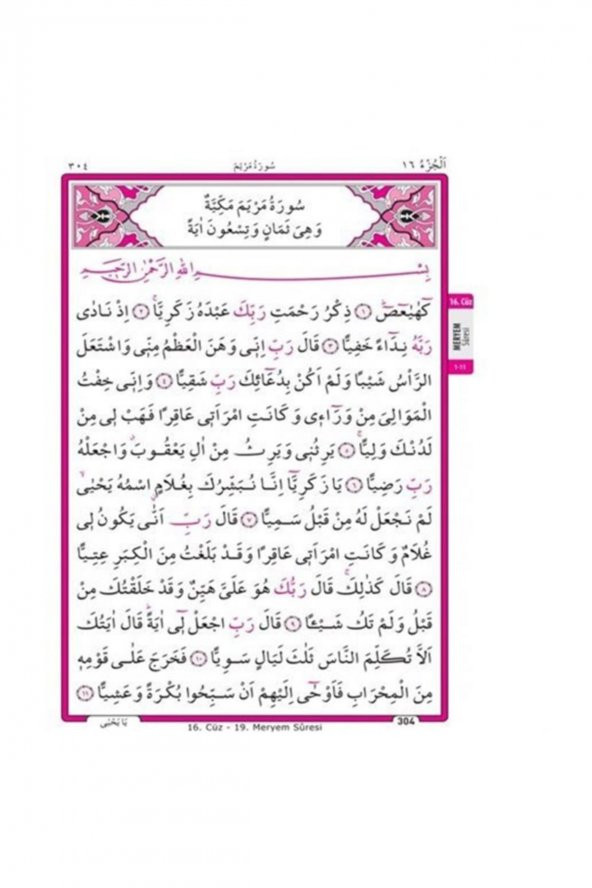 اَلْجُزْءُ ١٦ سُورَةُ مَرْيَمَ ٣٠٤
سُورَةُ مَرْيَمَ مَكِّيَّةٌ
وَهِيَ ثَمَانٍ وَتِسْعُونَ اٰيَةً
بِسْمِ اللّٰهِ الرَّحْمٰنِ الرَّحِيمِ
كٓهٰيٰعٓصٓ ﴿١﴾ ذِكْرُ رَحْمَتِ رَبِّكَ عَبْدَهُ زَكَرِيَّا ﴿٢﴾ اِذْ نَادٰى
رَبَّهُ نِدَٓاءً خَفِيًّا ﴿٣﴾ قَالَ رَبِّ اِنّ۪ي وَهَنَ الْعَظْمُ مِنّ۪ي وَاشْتَعَلَ
الرَّأْسُ شَيْبًا وَلَمْ اَكُنْ بِدُعَٓائِكَ رَبِّ شَقِيًّا ﴿٤﴾ وَاِنّ۪ي خِفْتُ
الْمَوَالِيَ مِنْ وَرَٓاء۪ي وَكَانَتِ امْرَاَت۪ي عَاقِرًا فَهَبْ ل۪ي مِنْ
لَدُنْكَ وَلِيًّا ﴿٥﴾ يَرِثُن۪ي وَيَرِثُ مِنْ اٰلِ يَعْقُوبَ وَاجْعَلْهُ
رَبِّ رَضِيًّا ﴿٦﴾ يَا زَكَرِيَّٓا اِنَّا نُبَشِّرُكَ بِغُلَامٍ اسْمُهُ يَحْيٰى
لَمْ نَجْعَلْ لَهُ مِنْ قَبْلُ سَمِيًّا ﴿٧﴾ قَالَ رَبِّ اَنّٰى يَكُونُ ل۪ي
غُلَامٌ وَكَانَتِ امْرَاَت۪ي عَاقِرًا وَقَدْ بَلَغْتُ مِنَ الْكِبَرِ عِتِيًّا
﴿٨﴾ قَالَ كَذٰلِكَ قَالَ رَبُّكَ هُوَ عَلَيَّ هَيِّنٌ وَقَدْ خَلَقْتُكَ مِنْ
قَبْلُ وَلَمْ تَكُ شَيْـًٔا ﴿٩﴾ قَالَ رَبِّ اجْعَلْ ل۪ٓي اٰيَةً قَالَ اٰيَتُكَ
اَلَّا تُكَلِّمَ النَّاسَ ثَلٰثَ لَيَالٍ سَوِيًّا ﴿١٠﴾ فَخَرَجَ عَلٰى قَوْمِه۪
مِنَ الْمِحْرَابِ فَاَوْحٰٓى اِلَيْهِمْ اَنْ سَبِّحُوا بُكْرَةً وَعَشِيًّا ﴿١١﴾
16. Cüz
MERYEM
Sûresi
1-11
304
16. Cüz - 19. Meryem Sûresi
يَا يَحْيٰى